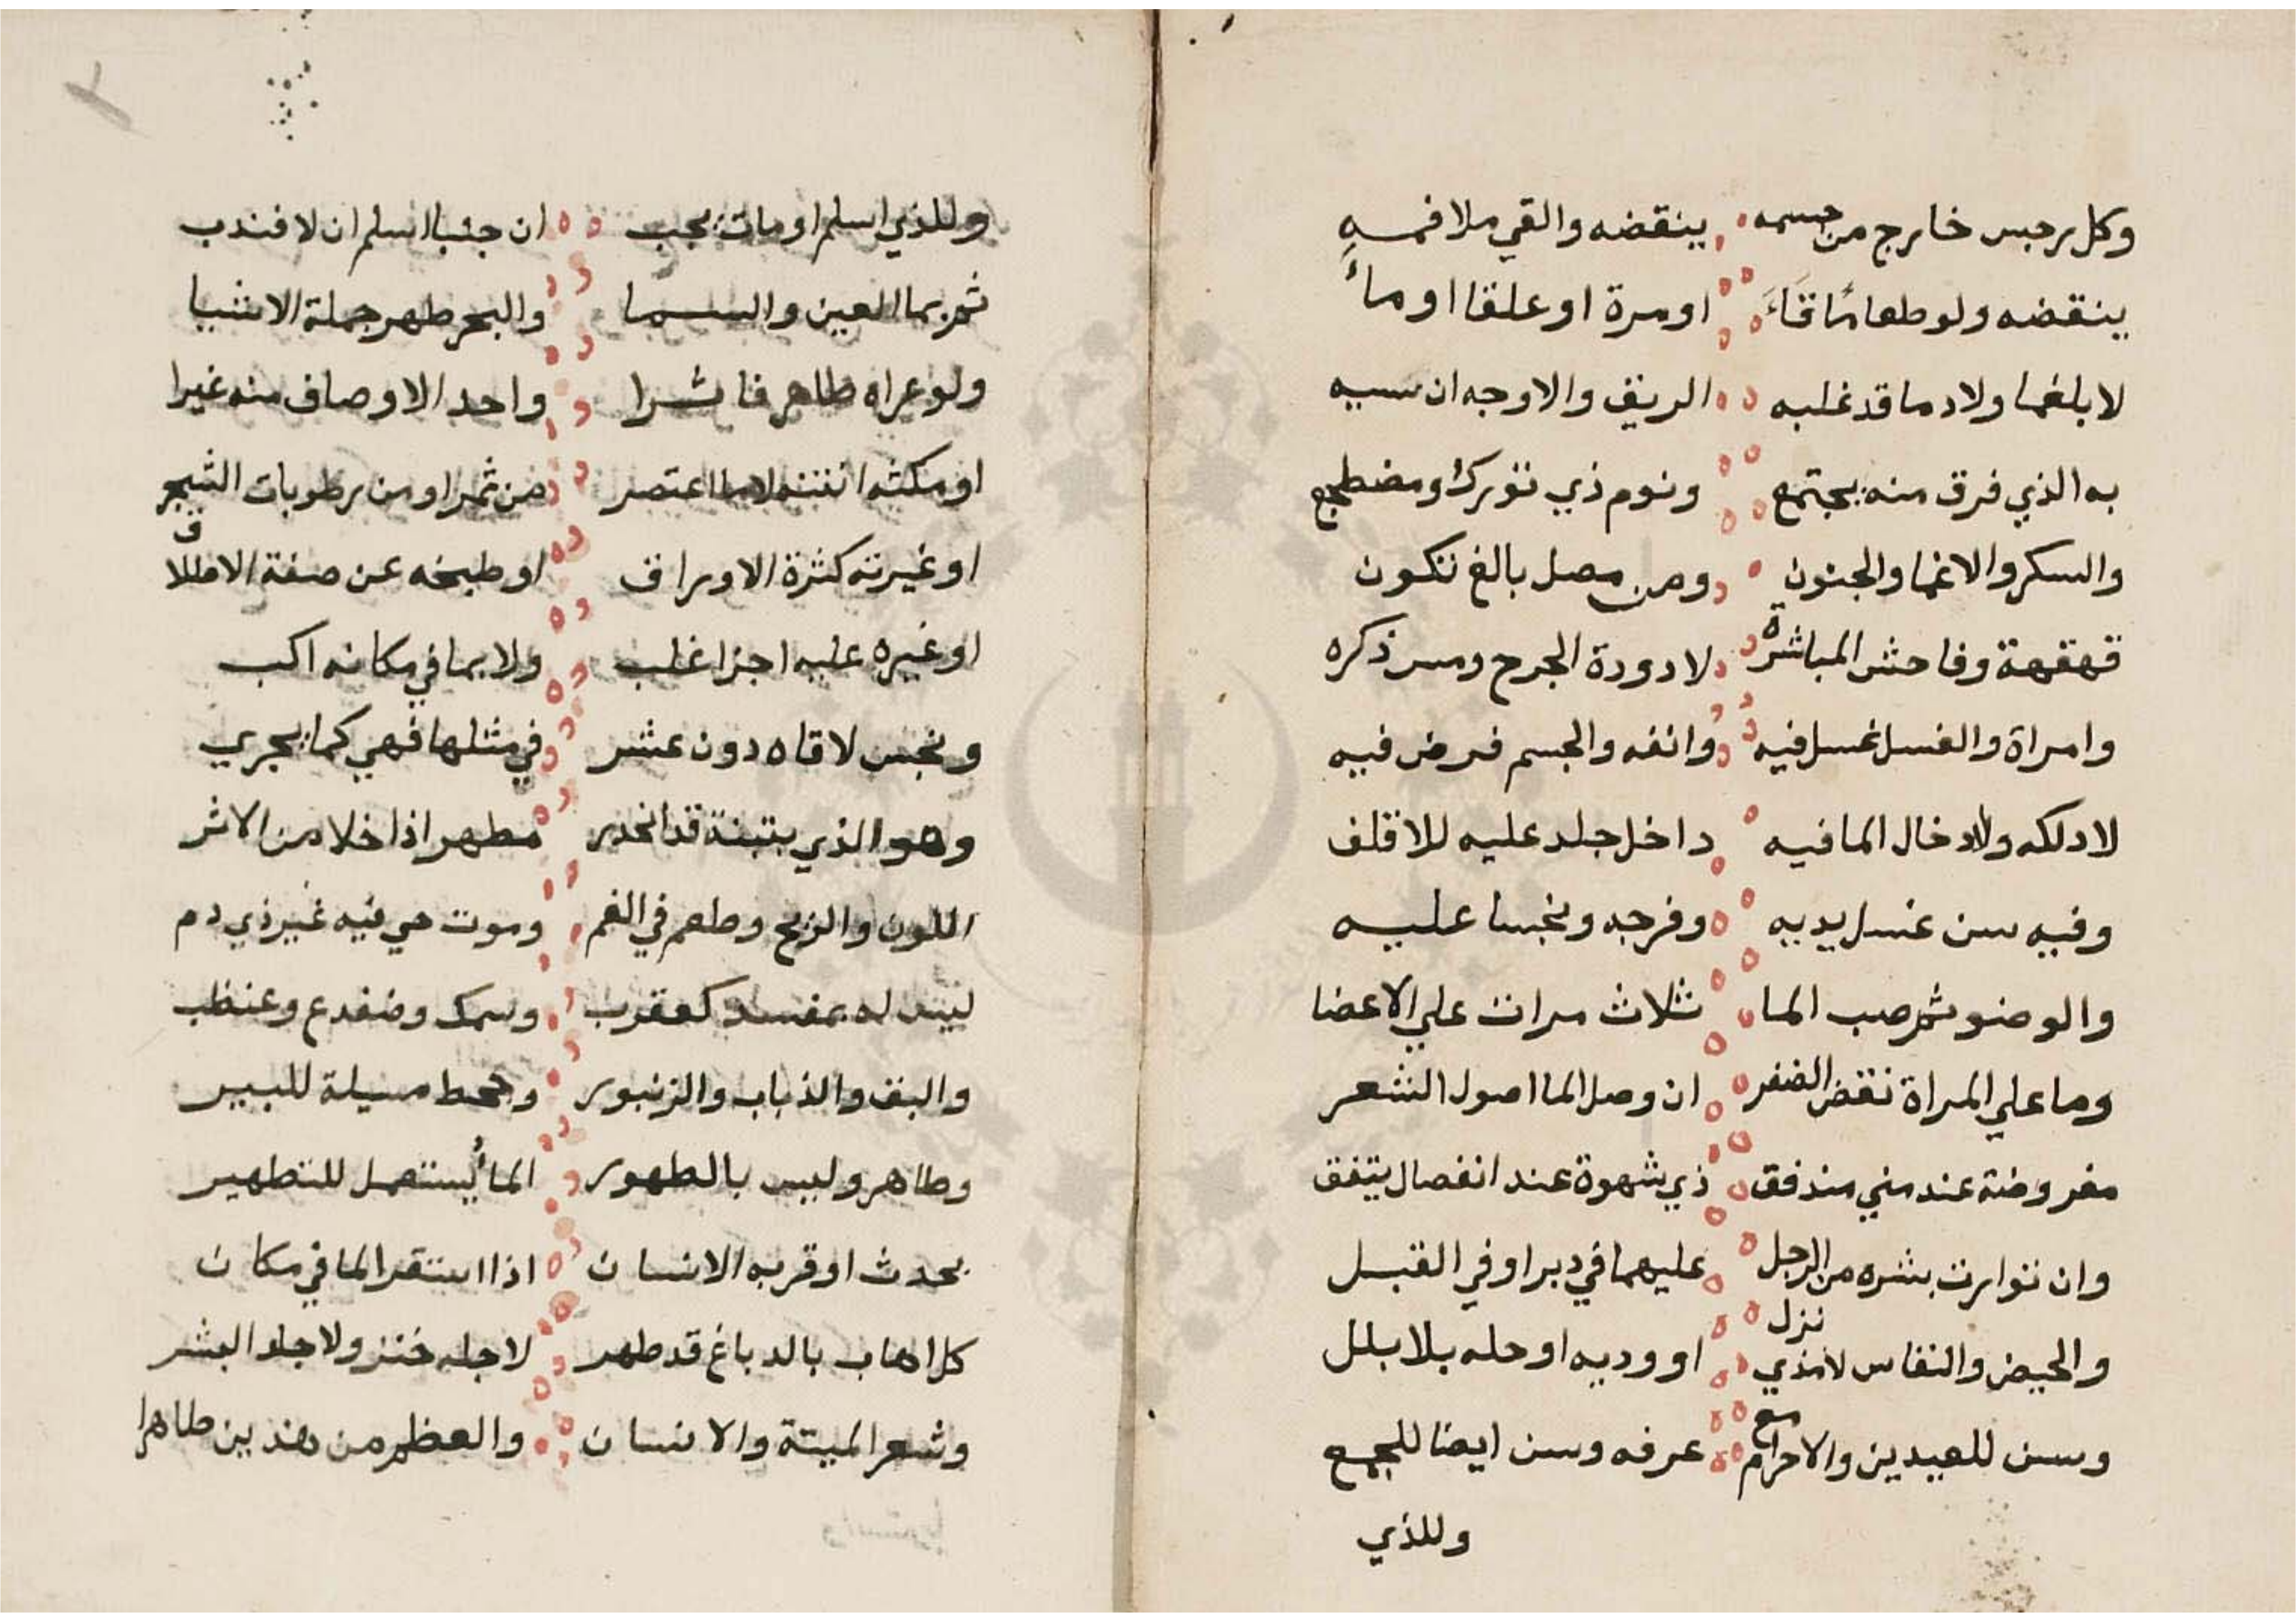 وكل رجس خارج من جسمه ينقضه والقي ملا فمه
ينقضه ولو طعامًا قَاءَ او مرة او علقا او ماءً
لا بلغما ولا دما قد غلبه الريق والاوجه ان سببه
به الذي فرق منه يجتمع ونوم ذي تورك ومضطجع
والسكر والاغما والجنون ومن مصل بالغ تكون
قهقهة وفاحش المباشرة لا دودة الجرح ومس ذكره
وامراة والغسل غسل فيه وانفه والجسم فرض فيه
لا دلكه ولا دخال الما فيه داخل جلد عليه للاقلف
وفيه سن غسل يديه وفرجه ونجسا عليه
والوضو ثم صب الما ثلاث مرات علي الاعضا
وما علي المراة نقض الضفر ان وصل الما اصول الشعر
مفروضة عند مني مندفق ذي شهوة عند انفصال يتفق
وان توارت بشره من الرجل عليهما في دبر او في القبل
والحيض والنفاس لا مذي نزل او وديه او حله بلا بلل
وسن للعيدين والاحرام مع عرفه وسن ايضا للجمع
وللذي
وللذي اسلم او مات يجب ان جنبا اسلم ان لا فندب
ثم بما العين والسما والبحر طهر جملة الاشيا
ولو عراه طاهر فاثرا واحد الاوصاف منه غيرا
او مكثه انتنه لا ما اعتصر من ثمر او من رطوبات الشجر
او غيرته كثرة الاوراق او طبخه عن صفة الاطلاق
او غيره عليه اجزا غلب ولا بما في مكانه اكب
ونجس لاقاه دون عشر في مثلها فهي كما يجري
وهو الذي بتبنة قد انحدر مطهر اذا خلا من الاثر
اللون والريح وطعم في الفم وموت حي فيه غير ذي دم
ليس له بمفسد كعقرب وسمك وضفدع وعنظب
والبق والذباب والزنبور و مسيلة للبير
وطاهر وليس بالطهور الماءُ يستعمل للتطهير
بحدث او قربه الانسان اذا استقر الما في مكان
كل اهاب بالدباغ قد طهر لا جلد خنز ولا جلد البشر
وشعر الميتة والانسان والعظم من هذين طاهرا